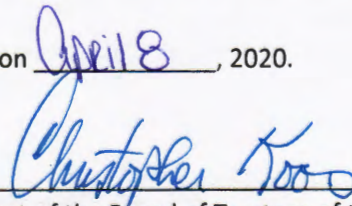 on April 8, 2020.
Christopher Koos